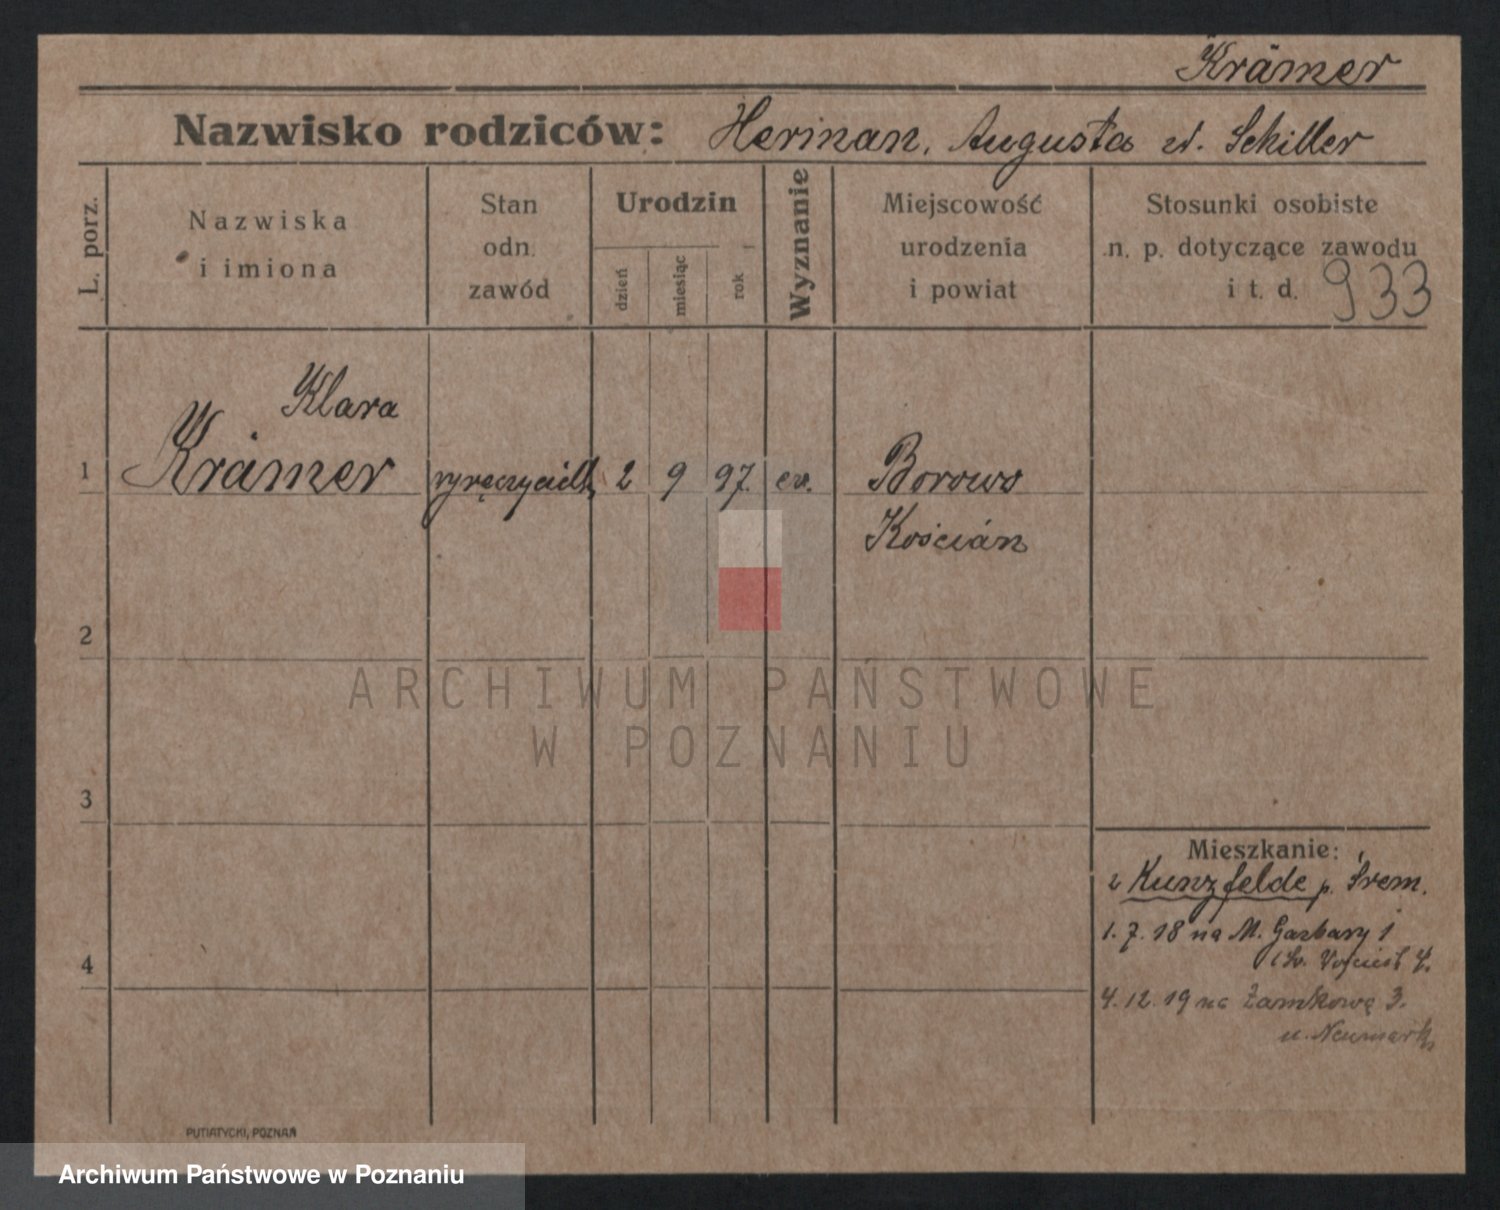 Krämer
Nazwisko rodziców: Herman, Augusta zd. Schiller
L. porz.
Nazwiska
i imiona
Stan
odn.
zawód
Urodzin
dzień
miesiąc
rok
Wyznanie
Miejscowość
urodzenia
i powiat
Stosunki osobiste
n. p. dotyczące zawodu
i t. d.
933
Klara
1 Krämer 2 9 97. ev. Borowo
Kościan
2
3
4
ARCHIWUM PAŃSTWOWE
W POZNANIU
Mieszkanie:
z Kunzfelde p. Śrem.
1. 7. 18 na M. Garbary 1
4. 12. 19 na Zamkowę 3.
u. Neumark
PUTIATYCKI, POZNAŃ
Archiwum Państwowe w Poznaniu